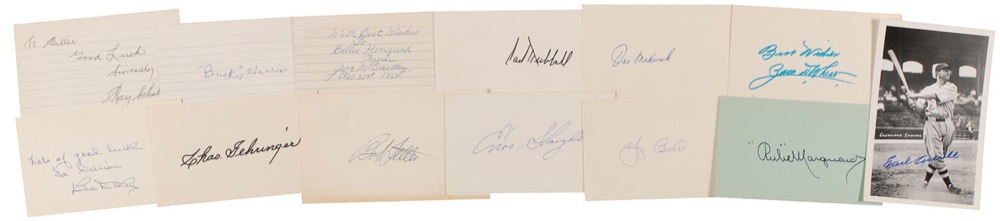 To Billie
Good Luck
Sincerely
Ray Schalk
"Bucky" Harris
With Best Wishes
to
Billie
From
Joe McCarthy
Carl Hubbell
Joe Medwick
Best Wishes
Zack Wheat
Lots of good luck
to William
Bill Dickey
Chas. Gehringer
Bob Feller
Enos Slaughter
Yogi Berra
"Rube" Marquard
CLEVELAND INDIANS
Earl Averill